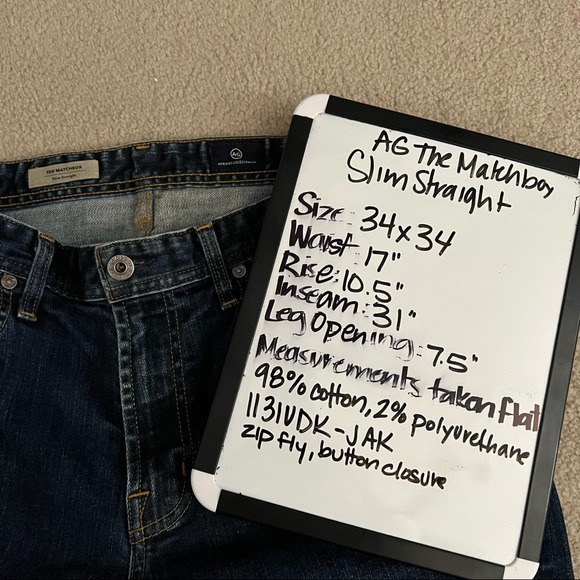 THE MATCHBOX
Slim Straight
AG
AG The Matchbox
Slim Straight
Size: 34x34
Waist: 17"
Rise: 10.5"
Inseam: 31"
Leg Opening: 7.5"
Measurements taken flat
98% cotton, 2% polyurethane
1131UDK-JAK
zip fly, button closure